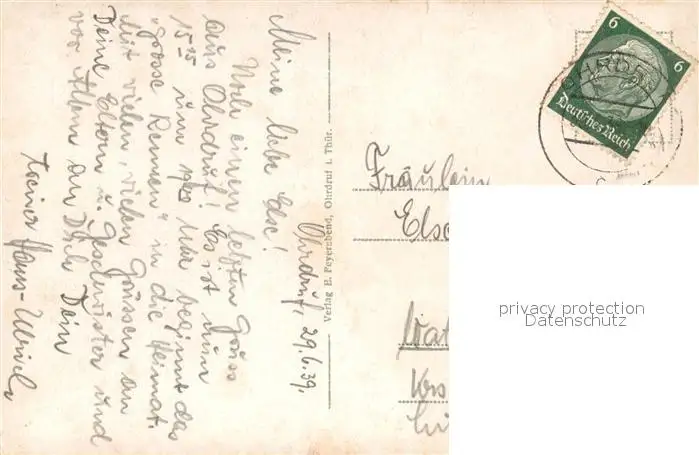 Ohrdruf, 29.6.39.
Meine liebe Else!
Noch einen letzten Gruss
aus Ohrdruf! Es ist nun
15 um Uhr beginnt das
"grosse Rennen" in die Heimat.
Mit vielen, vielen Grüssen an
Deine Eltern u. Geschwister und
vor Allem an Dich Dein
treuer Hans-Ulrich
Verlag E. Feyerabend, Ohrdruf i. Thür.
6 6
Deutsches Reich
OHRDRUF
Fräulein
Else
privacy protection
Datenschutz